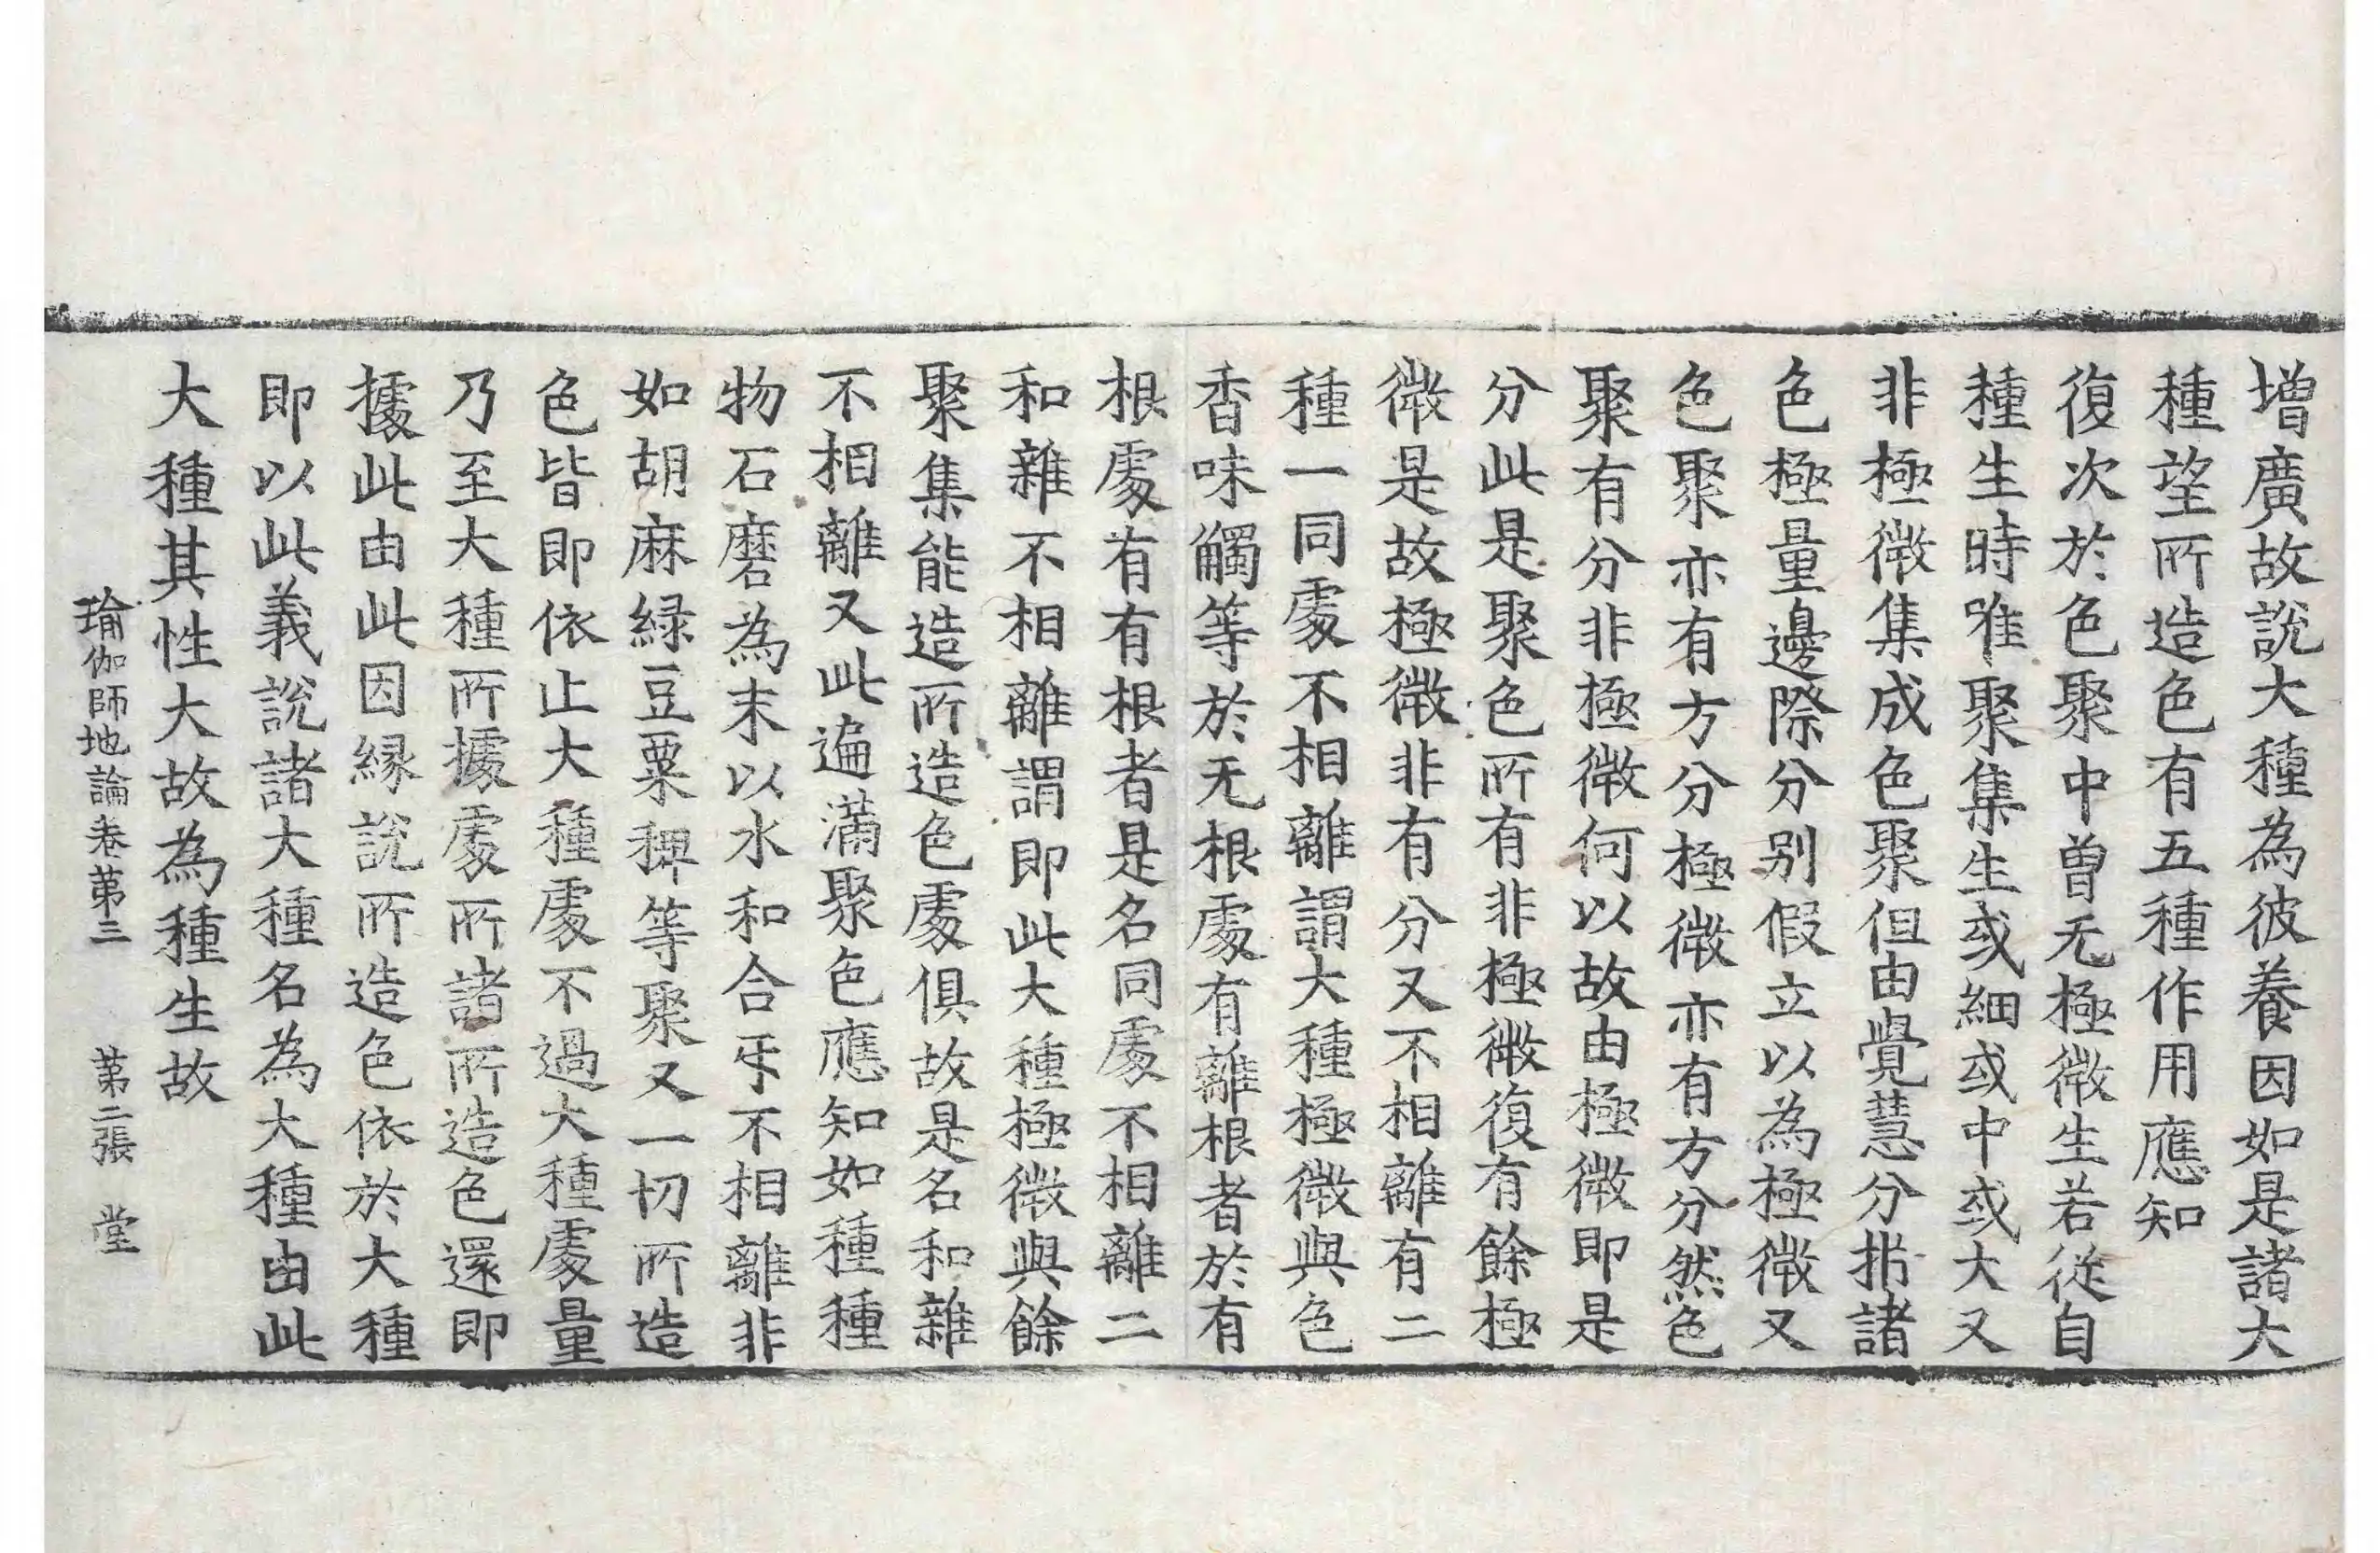 増廣故說大種為彼養因如是諸大
種望所造色有五種作用應知
復次於色聚中曾无極微生若從自
種生時唯聚集生或細或中或大又
非極微集成色聚但由覺慧分析諸
色極量邊際分别假立以為極微又
色聚亦有方分極微亦有方分然色
聚有分非極微何以故由極微即是
分此是聚色所有非極微復有餘極
微是故極微非有分又不相離有二
種一同處不相離謂大種極微與色
香味觸等於无根處有離根者於有
根處有有根者是名同處不相離二
和雜不相離謂即此大種極微與餘
聚集能造所造色處俱故是名和雜
不相離又此遍滿聚色應知如種種
物石磨為末以水和合㸦不相離非
如胡麻緑豆粟稗等聚又一切所造
色皆即依止大種處不過大種處量
乃至大種所據處所諸所造色還即
據此由此因縁說所造色依於大種
即以此義說諸大種名為大種由此
大種其性大故為種生故
瑜伽師地論卷第三　第二張　堂